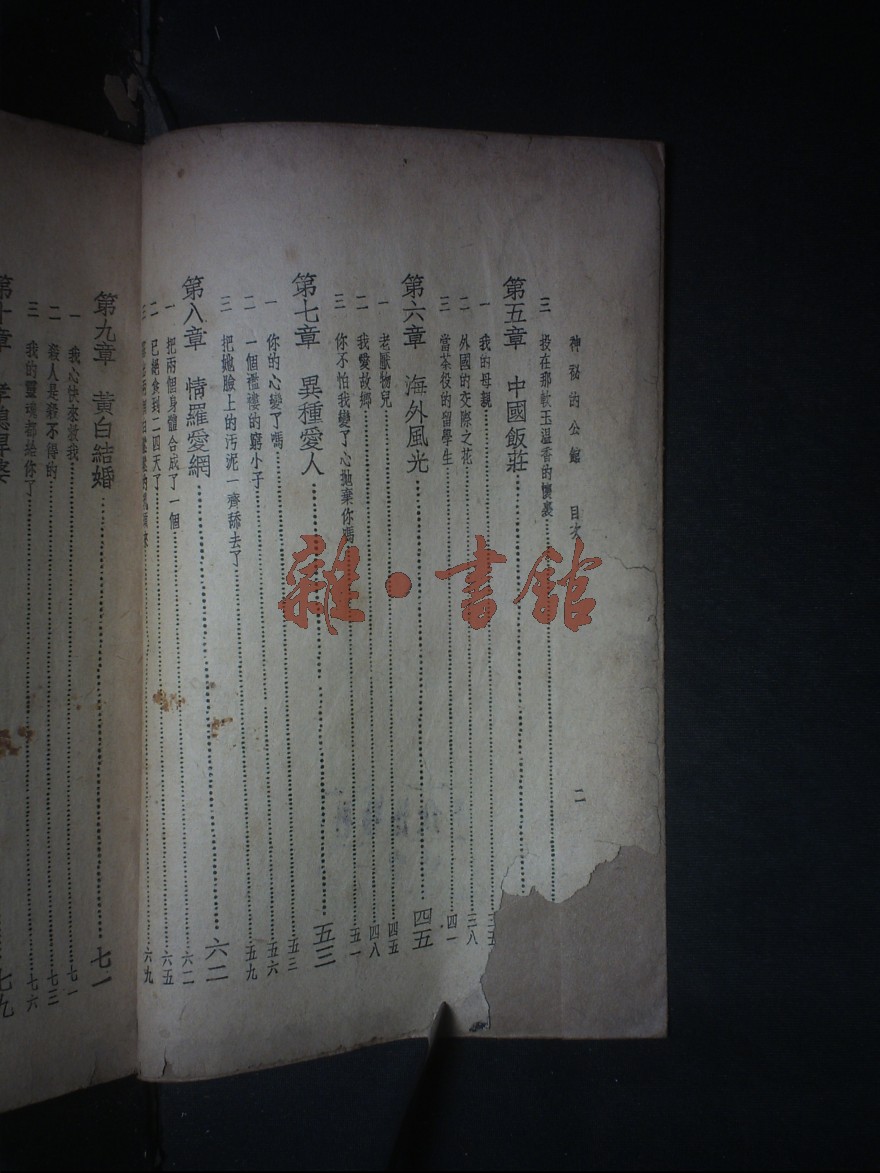 神秘的公館 目次 二
三 投在那軟玉温香的懷裏
第五章 中國飯莊
一 我的母親 三五
二 外國的交際之花 三八
三 當茶役的留學生 四一
第六章 海外風光 四五
一 老厭物兒 四五
二 我愛故鄉 四八
三 你不怕我變了心抛棄你嗎 五一
第七章 異種愛人 五三
一 你的心變了嗎 五三
二 一個襤褸的窮小子 五六
三 把她臉上的汚泥一齊舔去了 五九
第八章 情羅愛網 六二
一 把兩個身體合成了一個 六二
二 已絕食到二四天了 六五
三 六九
第九章 黃白結婚 七一
一 我心快來救我 七一
二 殺人是殺不得的 七三
三 我的靈魂都給你了 七六
第十章 七九
雜·書館